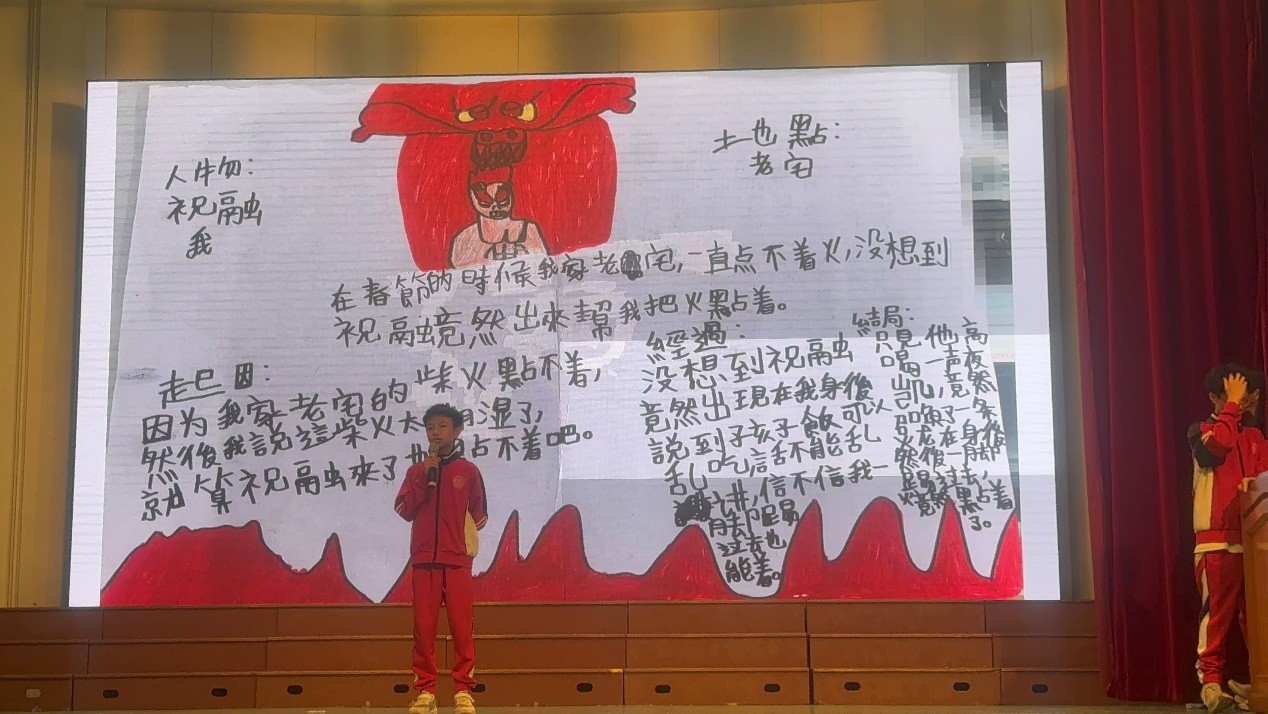 人物：
祝融
我
地點：
老宅
在春節的時候我家老宅，一直点不着火，没想到
祝融竟然出來幫我把火點着。
起因：
因为我家老宅的柴火點不着，
然後我說這柴火太潮湿了，
就算祝融來了也點不着吧。
經過：
没想到祝融
竟然出現在我身後
說到孩子飯可以
乱吃，話不能乱
讲，信不信我一
脚踢
过去也
能着。
結局：
只見他高
喝一声夜
凯，竟然
召喚了一条
火龙在身後
然後一脚
踢过去，
火竟然點着
了。